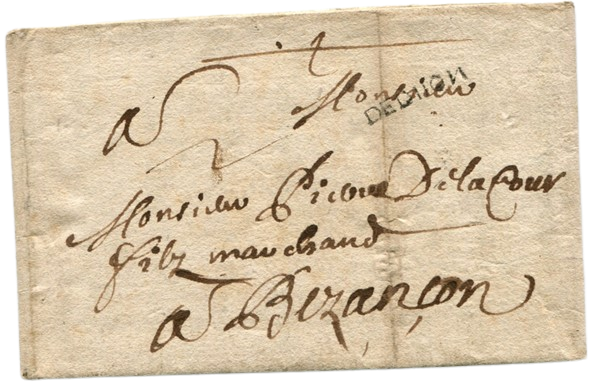 4
a Monsieur
Monsieur Pierre DelaCour
filz marchand
a Bezançon